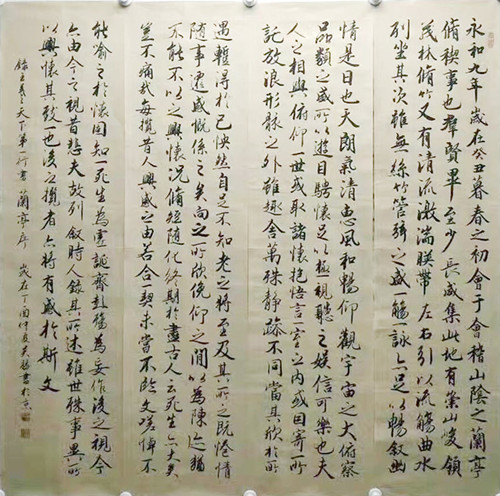 永和九年歲在癸丑暮春之初會于會稽山陰之蘭亭
脩稧事也羣賢畢至少長咸集此地有崇山峻領
茂林脩竹又有清流激湍暎帶左右引以流觴曲水
列坐其次雖無絲竹管弦之盛一觴一詠亦足以暢叙幽
情是日也天朗氣清惠風和暢仰觀宇宙之大俯察
品類之盛所以遊目騁懷足以極視聽之娛信可樂也夫
人之相與俯仰一世或取諸懷抱悟言一室之內或因寄所
託放浪形骸之外雖趣舍萬殊靜躁不同當其欣於所
遇蹔得於己怏然自足不知老之將至及其所之既惓情
隨事遷感慨係之矣向之所欣俛仰之閒以為陳迹猶
不能不以之興懷況脩短隨化終期於盡古人云死生亦大矣
豈不痛哉每攬昔人興感之由若合一契未嘗不臨文嗟悼不
能喻之於懷固知一死生為虛誕齊彭殤為妄作後之視今
亦由今之視昔悲夫故列叙時人錄其所述雖世殊事異所
以興懷其致一也後之攬者亦將有感於斯文
錄王羲之天下第一行書蘭亭序 歲在丁酉仲夏 書於京